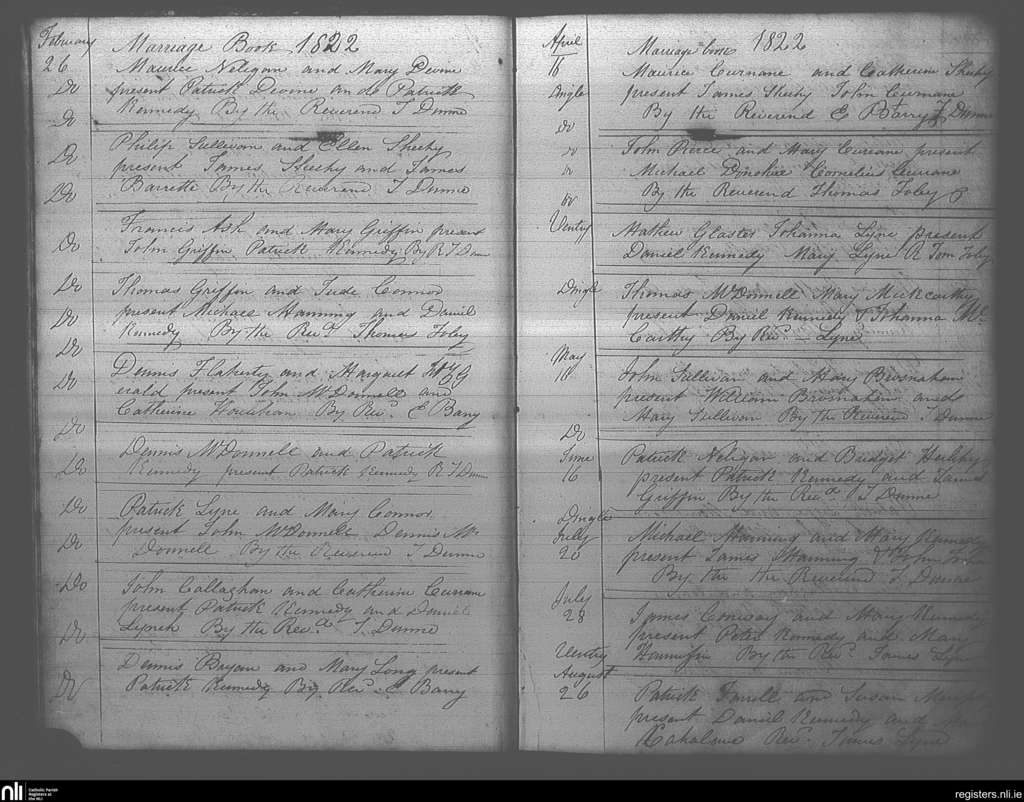 February Marriage Book 1822
26 Maurice Neligan and Mary Devine
Do present Patrick Devine and Patrick
Do Kennedy By the Reverend T Dunne
Do Philip Sullivan and Ellen Sheehy
present James Sheehy and James
Do Barrette By the Reverend T Dunne
Francis Ash and Mary Griffin present
Do John Griffin Patrick Kennedy By R T Dunne
Do Thomas Griffin and Jude Connor
Do present Michael Manning and Daniel
Kennedy By the Revd Thomas Foley
Do
Do Dennis Flaherty and Margaret Fitz G
erald present John McDonnell and
Do Catherine Hourahan By Revd E Barry
Dennis McDonnell and Patrick
Do Kennedy present Patrick Kennedy R T Dunne
Do Patrick Lyne and Mary Connor
Do present John McDonnell Dennis Mc
Donnell By the Reverend T Dunne
Do John Callaghan and Catherine Curran
present Patrick Kennedy and Daniel
Do Lynch By the Revd T. Dunne
Dennis Bryan and Mary Long present
Do Patrick Kennedy By Revd E Barry
April Marriage book 1822
16 Maurice Curnane and Catherine Sheehy
Dingle present James Sheehy John Curnane
Do By the Reverend E Barry T Dunne
Do John Pierce and Mary Curnane present
Do Michael Cornelius Curnane
Do By the Reverend Thomas Foley
Ventry Mathew Glaster Johanna Lyne present
Daniel Kennedy Mary Lyne R Tom Foley
Dingle Thomas McDonnell Mary McCarthy
present Daniel Kennedy & Johanna Mc
Carthy By Revd Lyne
May
16 John Sullivan and Mary Brosnahan
present William Brosnahan and
Mary Sullivan By the Reverend T Dunne
Do
June Patrick Neligan and Bridget
16 present Patrick Kennedy and James
Griffin By the Revd T Dunne
Dingle
July Michael Manning and Mary Kennedy
20 present James Manning & John
By the the Reverend T Dunne
July
28 James Conway and Mary Kennedy
present Peter Kennedy and Mary
Ventry By the Revd James Lyne
August
26 Patrick Farrell and Susan
present Daniel Kennedy and
Revd James Lyne
nli Catholic Parish
Registers at
the NLI
registers.nli.ie